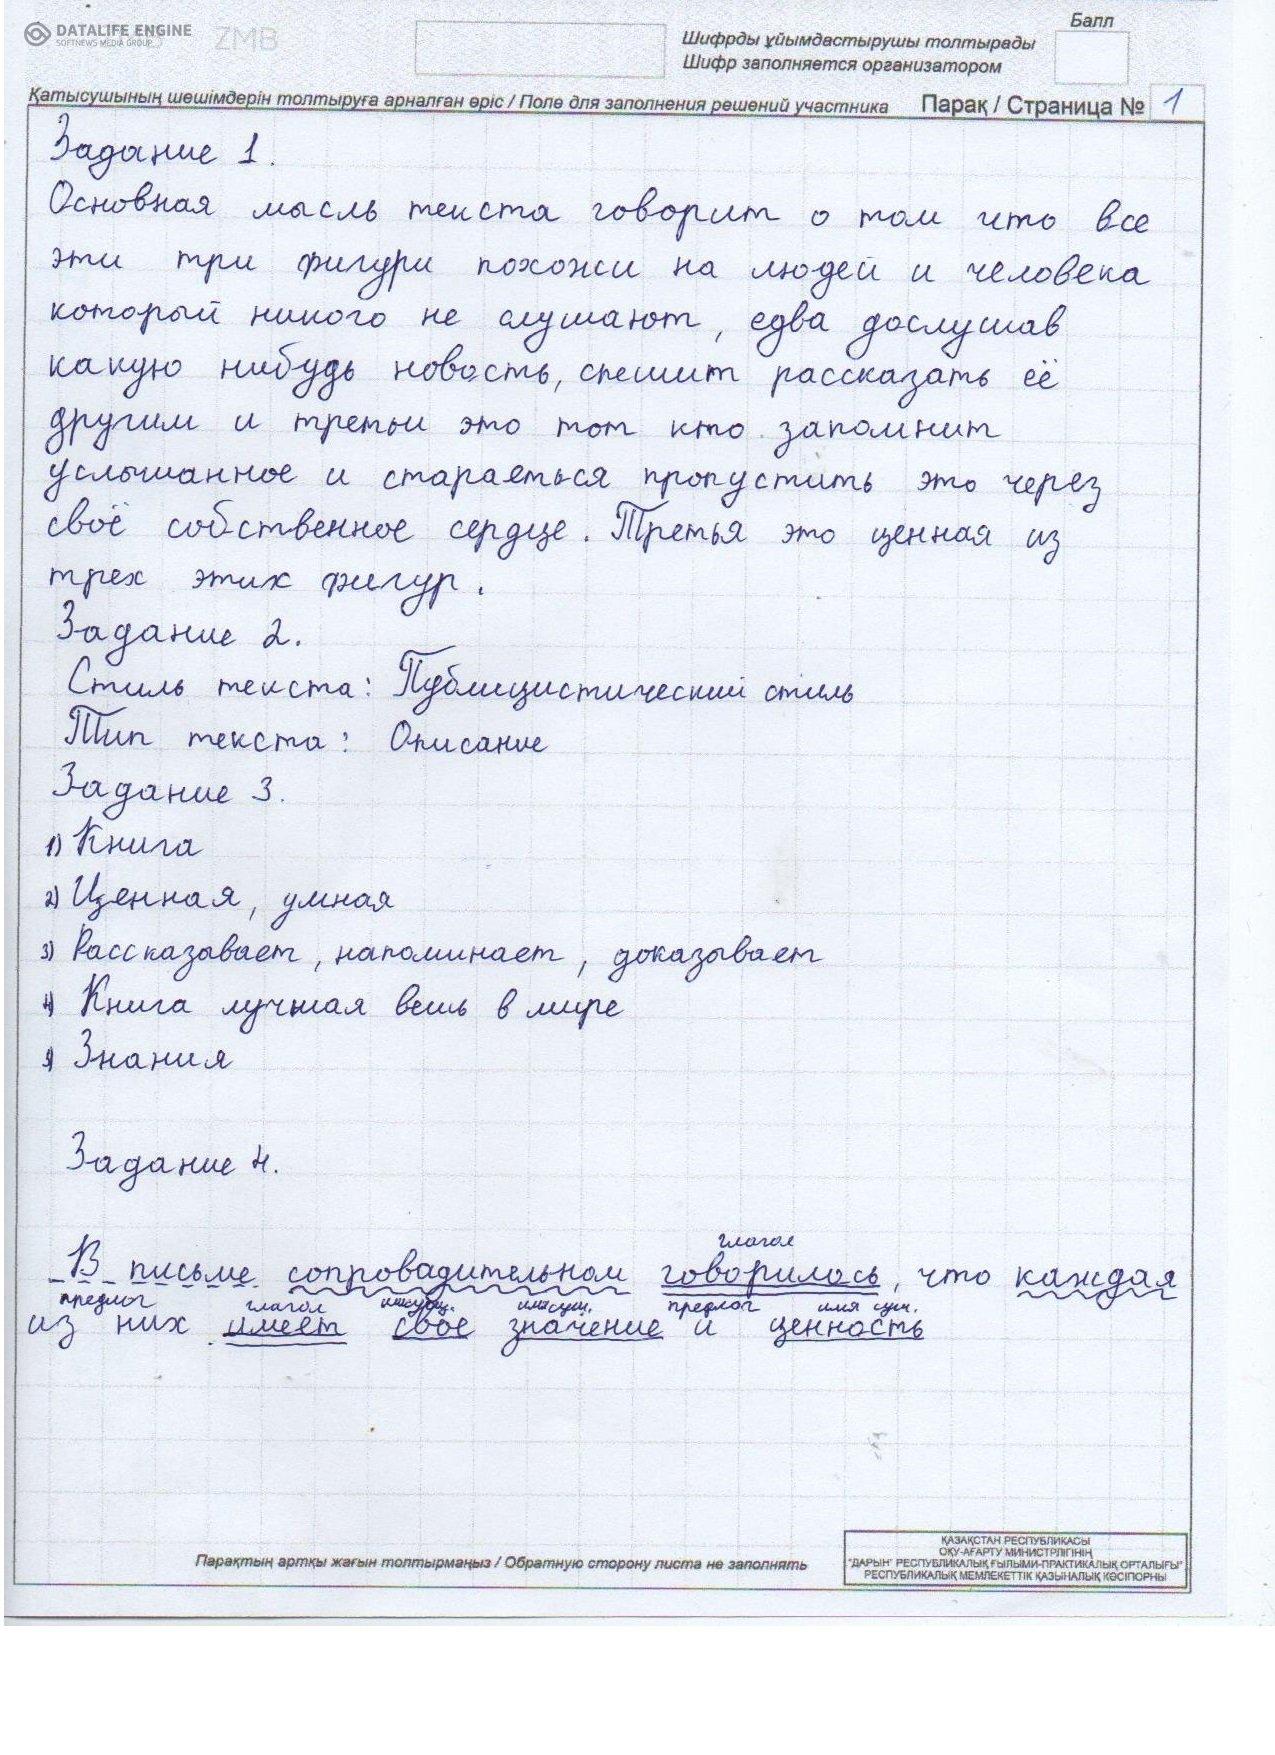 DATALIFE ENGINE
SOFTNEWS MEDIA GROUP
ZMB
Балл
Шифрды ұйымдастырушы толтырады
Шифр заполняется организатором
Қатысушының шешімдерін толтыруға арналған өріс / Поле для заполнения решений участника Парақ / Страница № 1
Задание 1.
Основная мысль текста говорит о том что все
эти три фигури похожи на людей и человека
который никого не слушают, едва дослушав
какую нибудь новость, спешит рассказать её
другим и третьи это тот кто запомнит
услышанное и стараеться пропустить это через
своё собственное сердце. Третья это ценная из
трех этих фигур.
Задание 2.
Стиль текста: Публицистический стиль
Тип текста: Описание
Задание 3.
1) Книга
2) Ценная, умная
3) Рассказывает, напоминает, доказывает
4) Книга лучшая вешь в мире
5) Знания
Задание 4.
глагол
В письме сопроводительном говорилось, что каждая
предлог глагол имя сущ. предлог имя сущ.
из них имеет свое значение и ценность
Парақтың артқы жағын толтырмаңыз / Обратную сторону листа не заполнять
ҚАЗАҚСТАН РЕСПУБЛИКАСЫ
ОҚУ-АҒАРТУ МИНИСТРЛІГІНІҢ
"ДАРЫН" РЕСПУБЛИКАЛЫҚ ҒЫЛЫМИ-ПРАКТИКАЛЫҚ ОРТАЛЫҒЫ"
РЕСПУБЛИКАЛЫҚ МЕМЛЕКЕТТІК ҚАЗЫНАЛЫҚ КӘСІПОРНЫ